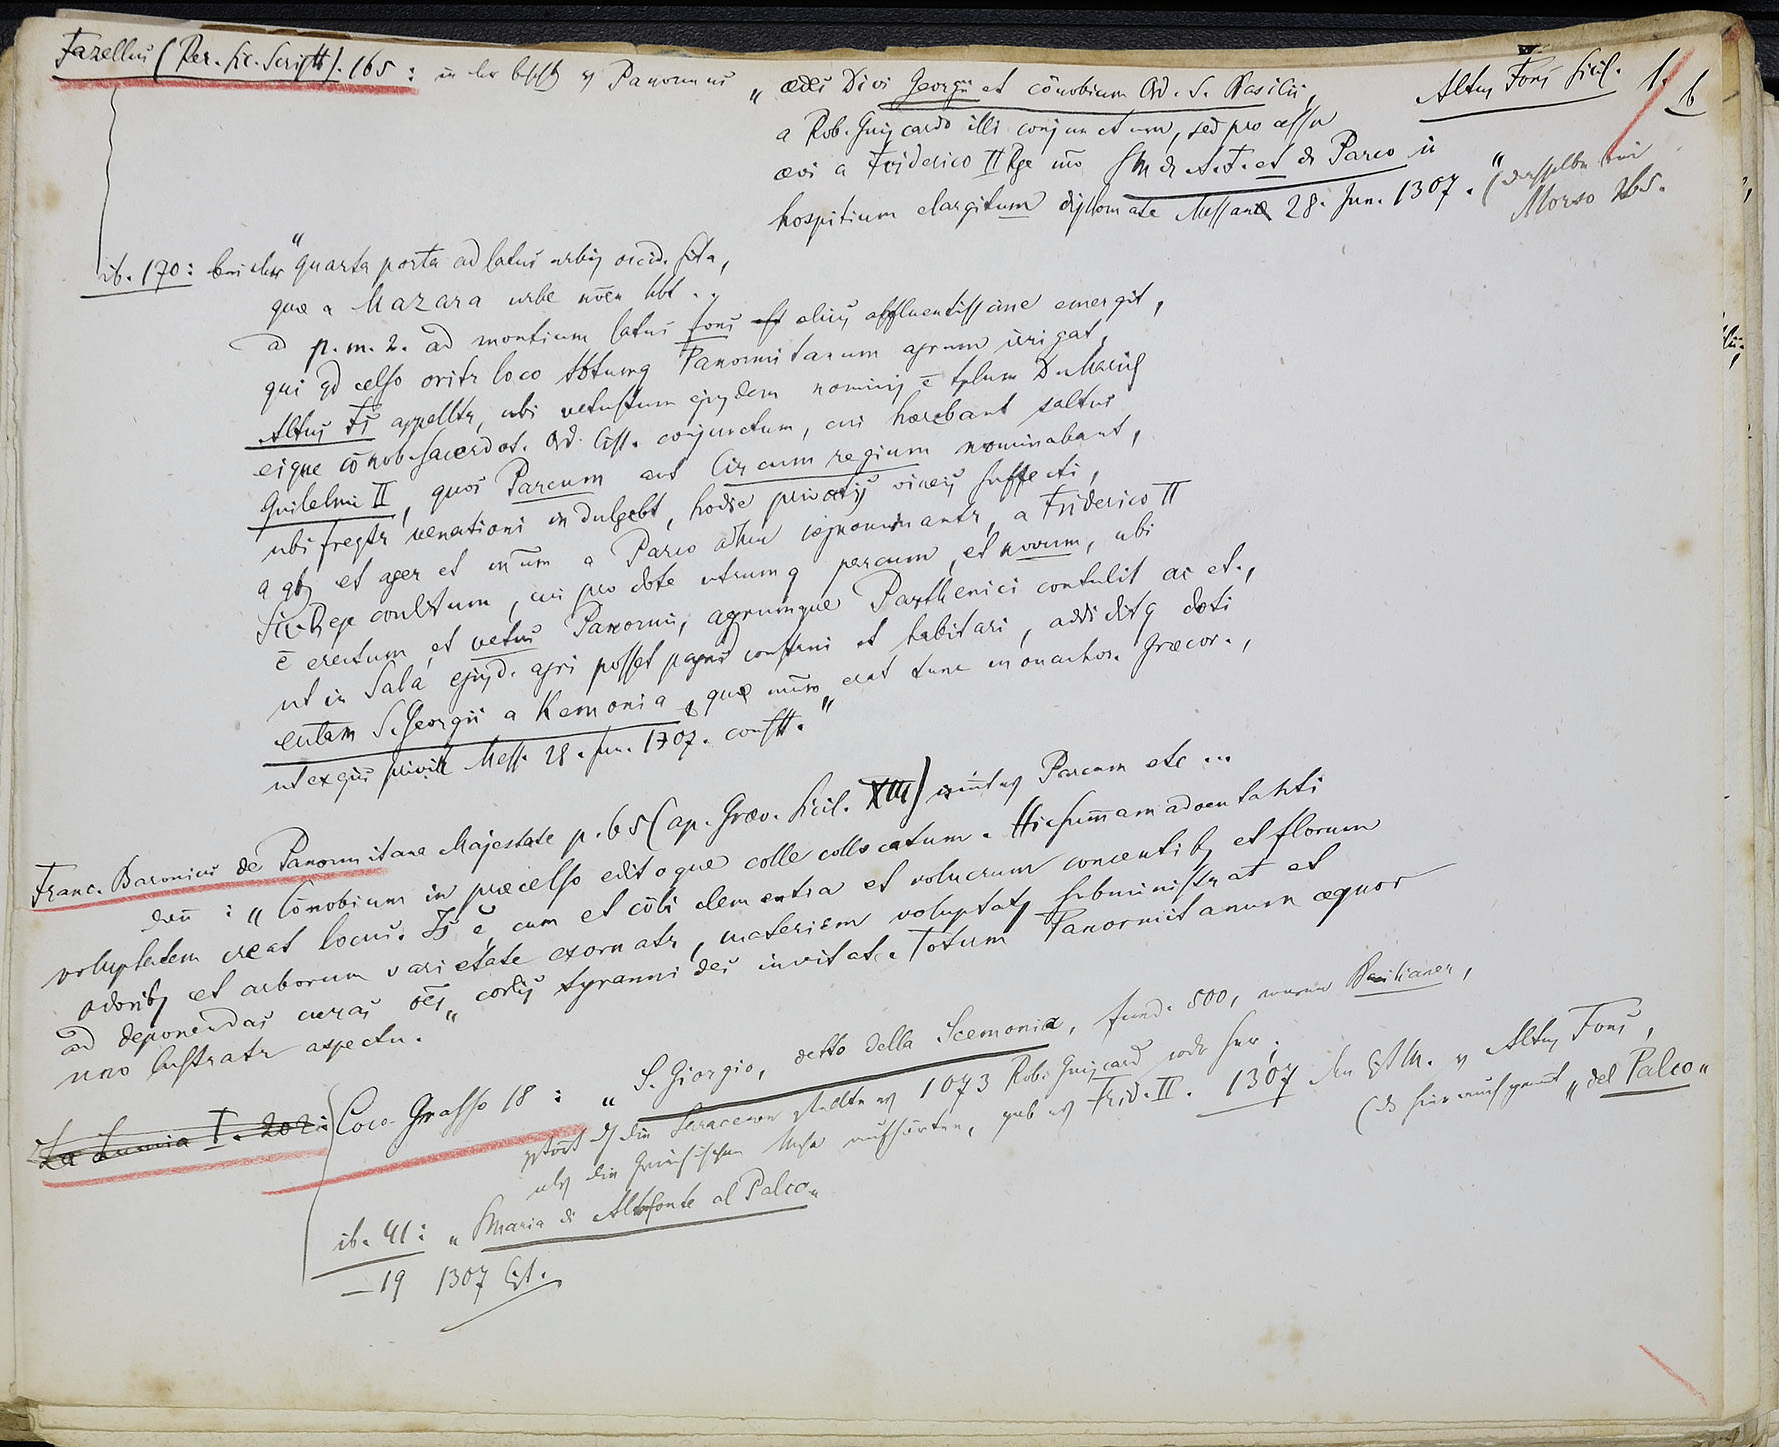 Altus Fons Sicil. 1. b
Fazellus (Rer. Sic. Scriptt). 165: in der bschrbg v Panormus „ædes Divi Georgii et cœnobium Ord. S. Basilii,
a Rob. Guiscardo illi conjunctum, sed processu
ævi a Friderico II Rge mõ SM de A.F. et de Parco in
hospitium elargitum diplomate Messanæ 28. Jun. 1307." (derselbe bei
Morso 265.
ib. 170: bei der "Quarta porta ad latus urbis occid. sita,
quæ a Mazara urbe nõen hbt ..
ad p. m. 2. ad montium latus fons est alius affluentissime emergit,
qui qd celso oritr loco totumq Panormitanum agrum irrigat,
Altus Fs appelltr, ubi vetustum ejusdem nominis ē tplum D. Mariæ
eique cõnob. sacerdot. Ord. Cist. conjunctum, cui hærebant saltus
Guilelmi II, quos Parcum aut Circum regium nominabant,
ubi freqtr venationi indulgebt, hodie privatis vineis suffecti,
a qbs et ager et mūm a Parco adhuc cognominantr, a Friderico II
Sic. Rege conditum, cui pro dote utrumq parcum, et novum, ubi
ē erectum et vetus Panormi, agrumque Parthenici contulit ac et.,
ut in Sala ejusd. agri posset pagus construi et habitari, addiditq doti
eccltam S. Georgii a Kemonia, quæ mõm erat tunc monachor. Græcor.,
ut ex ejus privil. Mess. 28. Jun. 1307. constt."
Franc. Baronius de Panormitana Majestate p. 65 (ap. Græv. Sicil. XIII) Parcum etc ...
dann: „Cõnobium in præcelso editoque colle collocatum. Hic summam adventanti
voluptatem creat locus. Is ē, cum et cœli clementia et volucrum concentibs et florum
odoribs et arborum varietate exornatr, materiem voluptatis subministrat et
ad deponendas curas oēs cordis tyrannides invitat. Totum Panormitanum æquor
uno lustratr aspectu."
La Lumia I. 202:
Coco-Grasso 18: „S. Giorgio, detto della Scemonia, fund. 500, waren Basilianer,
zstört d die Saracenen 1073 Rob. Guiscard
als die Griechischen aufhörten, gab es Frid. II. 1307 den Cist. M. v Altus Fons,
(d hieraus gennt „del Palco"
ib. 41: „S Maria di Altofonte al Palco"
— 19 1307 Cist.